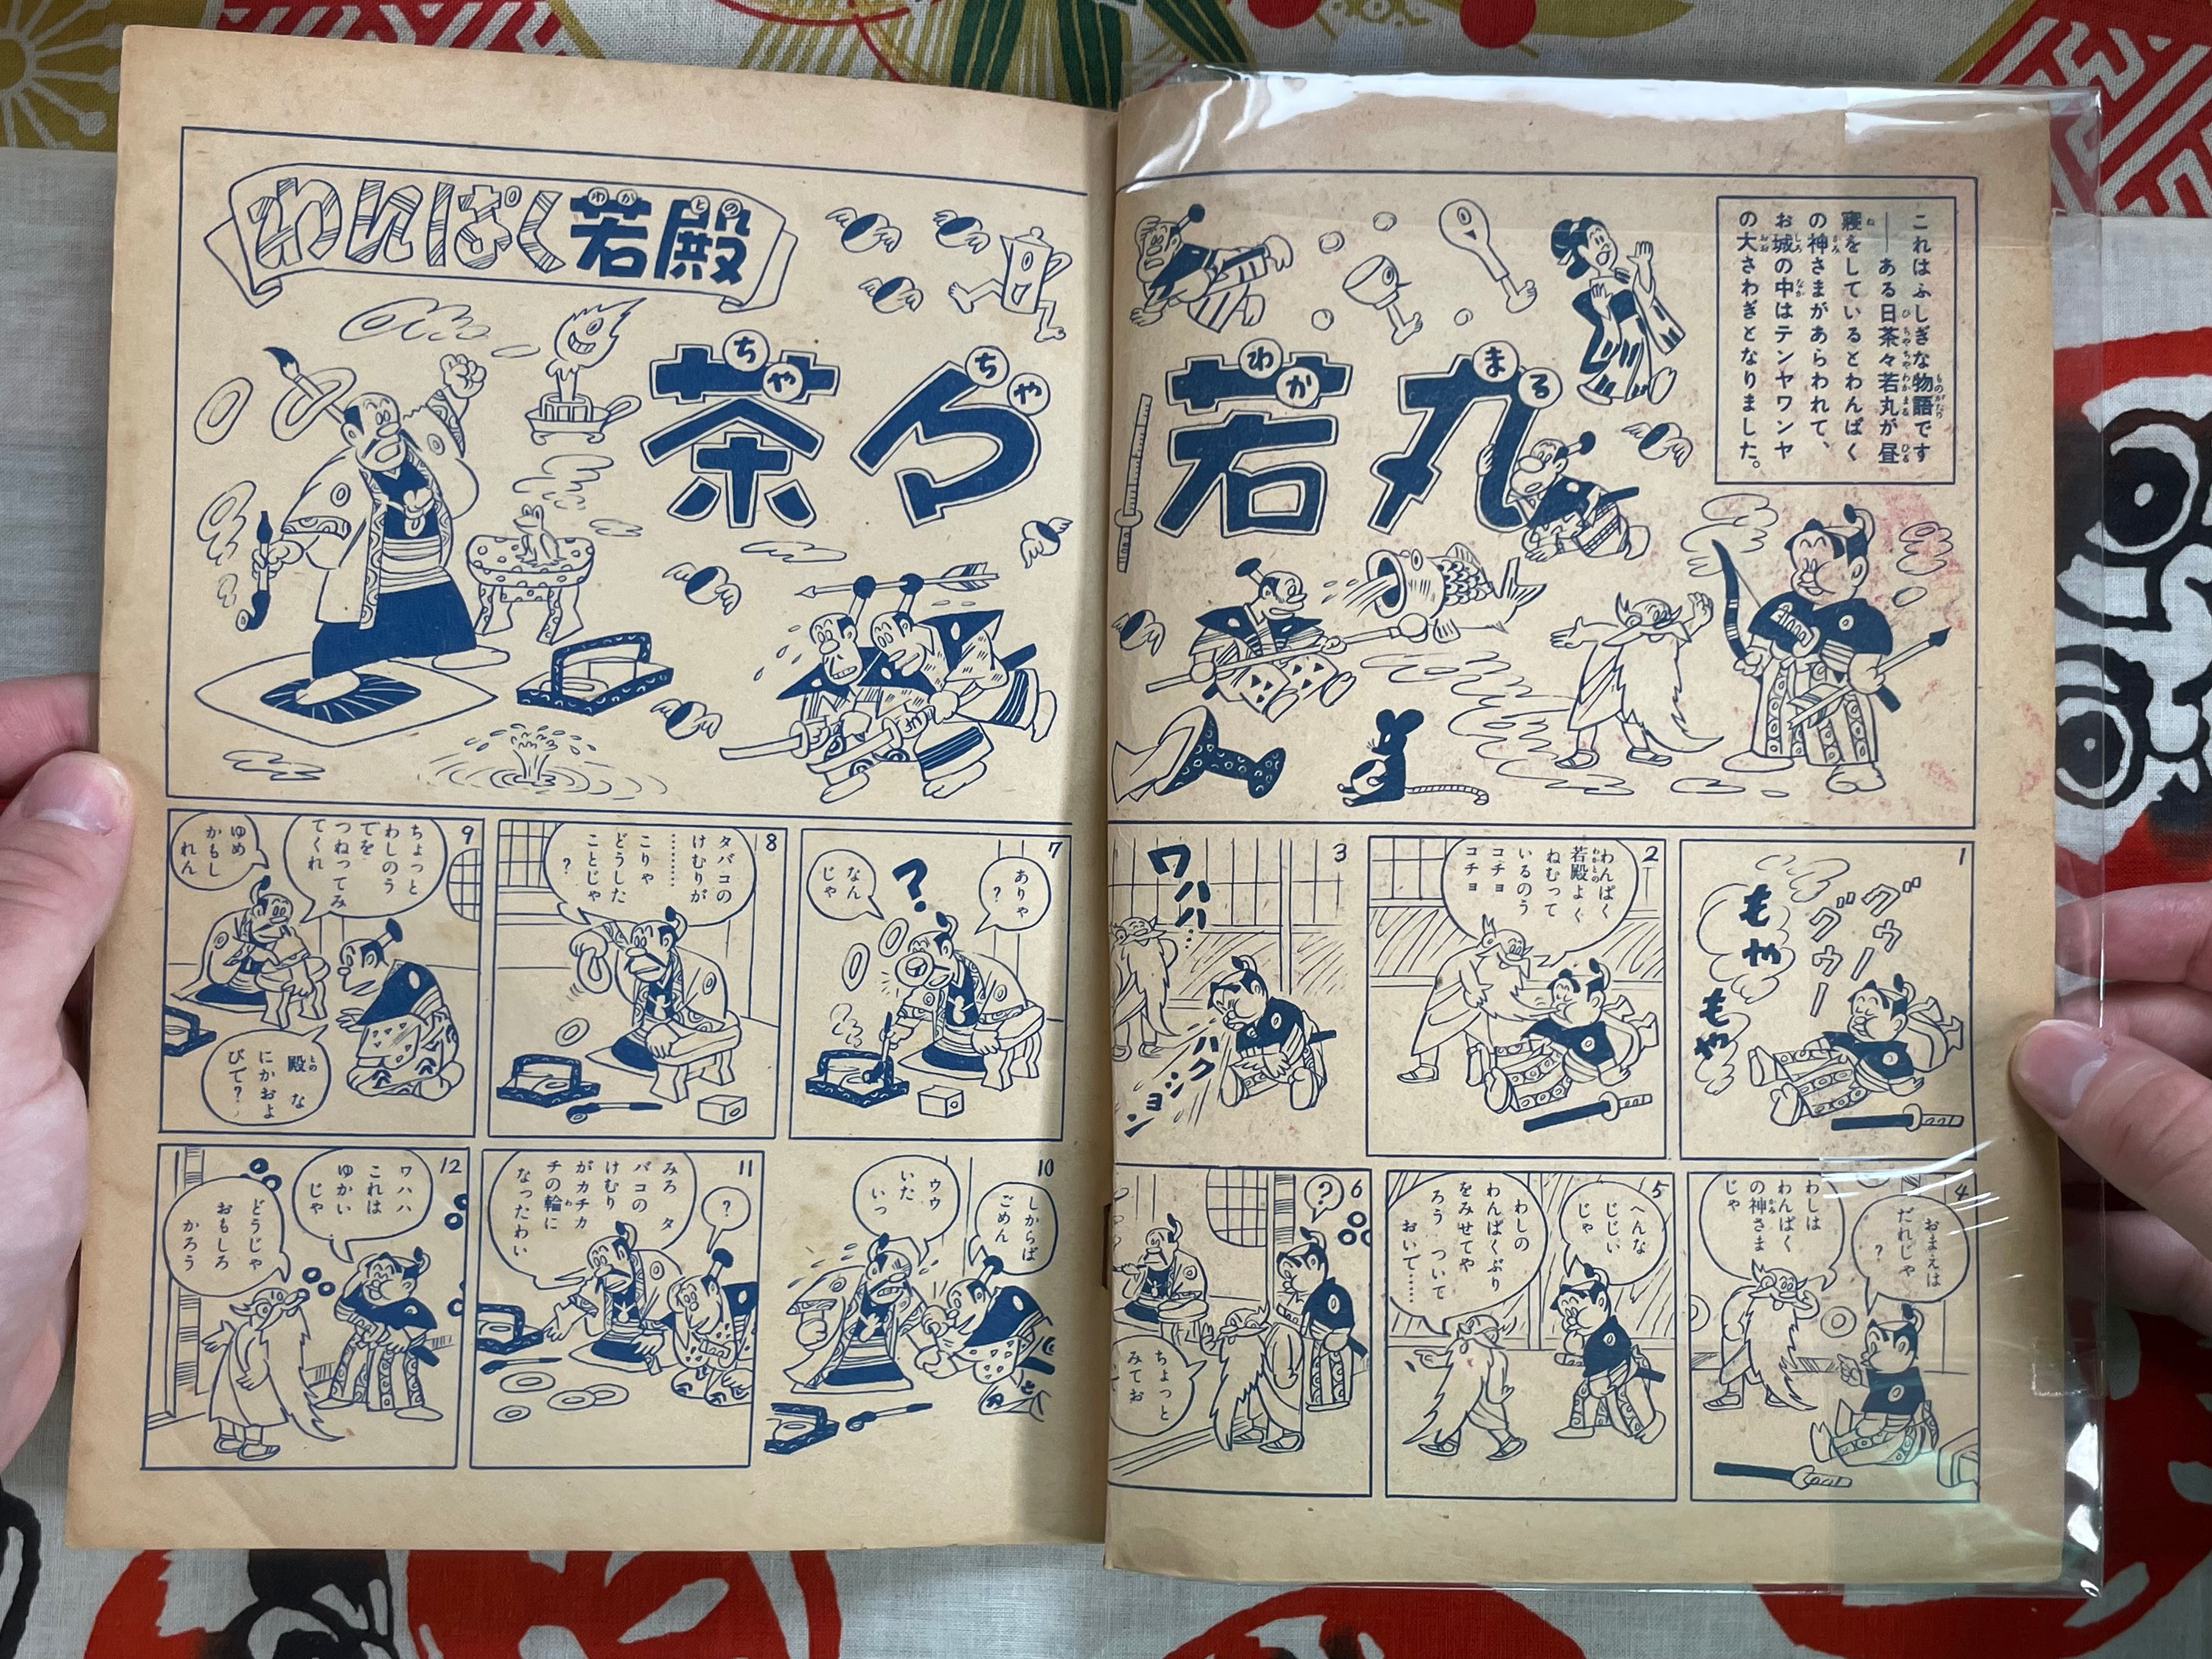 わんぱく若殿
わか との
茶々若丸
ちゃ ちゃ わか まる
これはふしぎな物語です
――ある日茶々若丸が昼
寝をしているとわんぱく
の神さまがあらわれて、
お城の中はテンヤワンヤ
の大さわぎとなりました。
1
グゥー
グウー
もや
もや
2
わんぱく
若殿よく
ねむって
いるのう
コチョ
コチョ
3
ワハハ…
ハク
ショ
ン
4
おまえは
だれじゃ
?
わしは
わんぱく
の神さま
じゃ
5
へんな
じじい
じゃ
わしの
わんぱくぶり
をみせてや
ろう ついて
おいて……
6
?
ちょっと
みてお
7
ありゃ
?
?
なん
じゃ
8
タバコの
けむりが
………
こりゃ
どうした
ことじゃ
?
9
ちょっと
わしのう
でを
つねってみ
てくれ
ゆめ
かもし
れん
殿な
にかおよ
びで?
10
しからば
ごめん
ウウ
いた
いっ
11
?
みろ タ
バコの
けむり
がカチカ
チの輪に
なったわい
12
ワハハ
これは
ゆかい
じゃ
どうじゃ
おもしろ
かろう